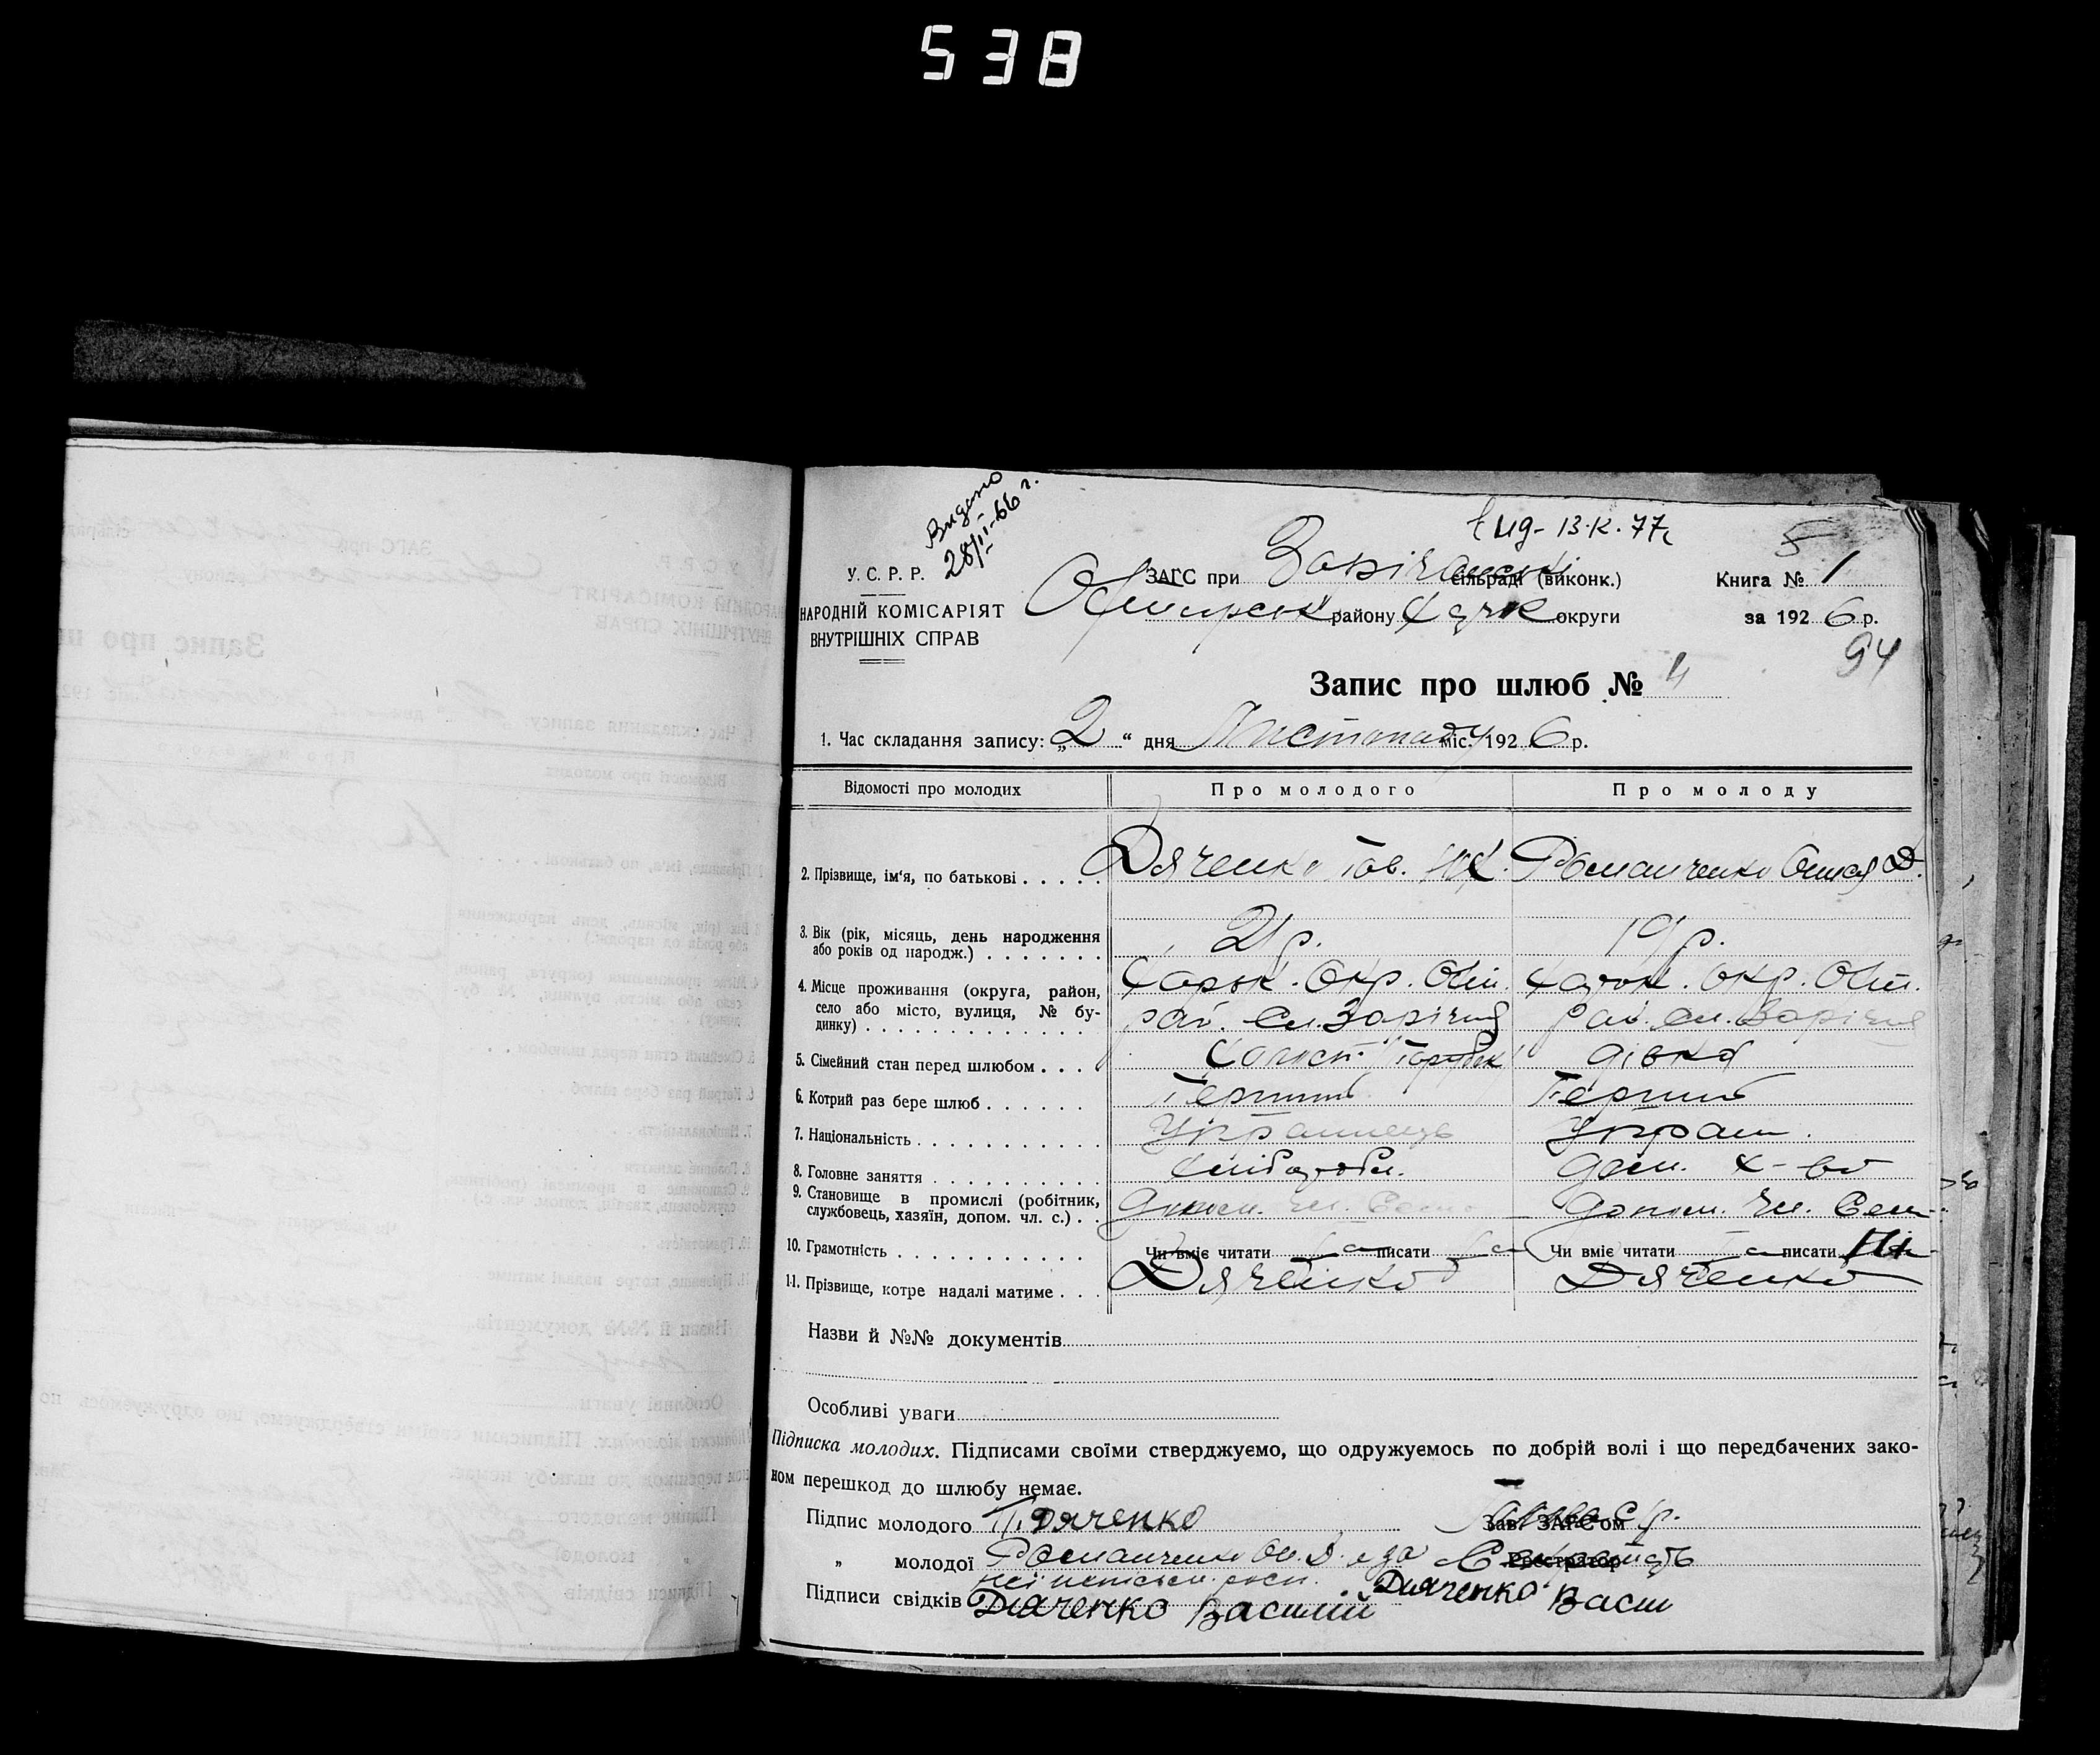 538
Видано
28/II-66 г.
13.IX.77г
У. С. Р. Р.
НАРОДНІЙ КОМІСАРІЯТ
ВНУТРІШНІХ СПРАВ
ЗАГС при Зарічанські сільраді (виконк.)
району Харк округи
Книга № 1
за 1926 р.
94
Запис про шлюб № 4
1. Час складання запису: „2“ дня Листопаду міс. 1926 р.
Відомості про молодих
Про молодого
Про молоду
2. Прізвище, ім‘я, по батькові . . . . .
Дяченко
Романченко D.
3. Вік (рік, місяць, день народження
або років од народж.) . . . . . . .
21 р.
19 р.
4. Місце проживання (округа, район,
село або місто, вулиця, № бу-
динку) . . . . . . . . . . . . . .
Харьк. Окр. Охт.
рай. сл. Зарічня
Харьк. Окр. Охт.
Рай. сл. Зарічня
5. Сімейний стан перед шлюбом . . . .
Холост. Парубок
дівка
6. Котрий раз бере шлюб . . . . . .
Перший
Перший
7. Національність . . . . . . . . . . .
Українець
Украін.
8. Головне заняття . . . . . . . . . .
Хліборобн.
дом. х-во
9. Становище в промислі (робітник,
службовець, хазяїн, допом. чл. с.) . .
допом. чл. Семи
допом. чл. Сем
10. Грамотність . . . . . . . . . . . .
Чи вміє читати Та писати Та
Чи вміє читати Та писати
11. Прізвище, котре надалі матиме . . .
Дяченко
Дяченко
Назви й №№ документів
Особливі уваги
Підписка молодих. Підписами своїми стверджуємо, що одружуємось по добрій волі і що передбачених зако-
ном перешкод до шлюбу немає.
Підпис молодого П. Дяченко
Зав. ЗАГС‘ом
„ молодої Романченко Ол. D. а за
Реєстратор Секретарь
неі неписьм. росп.
Підписи свідків Дияченко Василий
Дияченко Васи